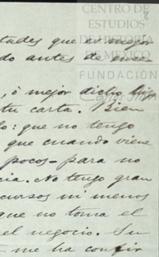 CENTRO DE
ESTUDIOS
DE HISTORIA
DE MÉXICO
FUNDACIÓN
tades que
do antes de
, ó mejor dicho
tu carta. Bien
lo: que no tengo
que cuando viene
pocos - para no
cia. No tengo gran
cursos ni menos
que no toma el
el negocio. Su
me ha